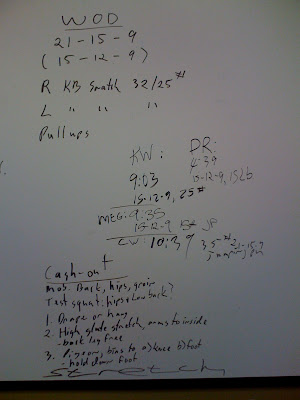 WOD
21-15-9
(15-12-9)
R KB Snatch 32/25#
L " " "
Pullups
KW:
9:03
15-12-9, 25#
DR:
4:39
15-12-9, 15Lb
MEG: 9:35
15-12-9 15# JP
CW: 10:39
35# 21-15-9
Jumping
Cash-out
Mob. Back, hips, groin
Test squat: hips + low back?
1. Drape or hang
2. High glute stretch, arms to inside
- back leg free
3. Pigeon, bias to a) knee b) foot
- hold down foot
Stretch